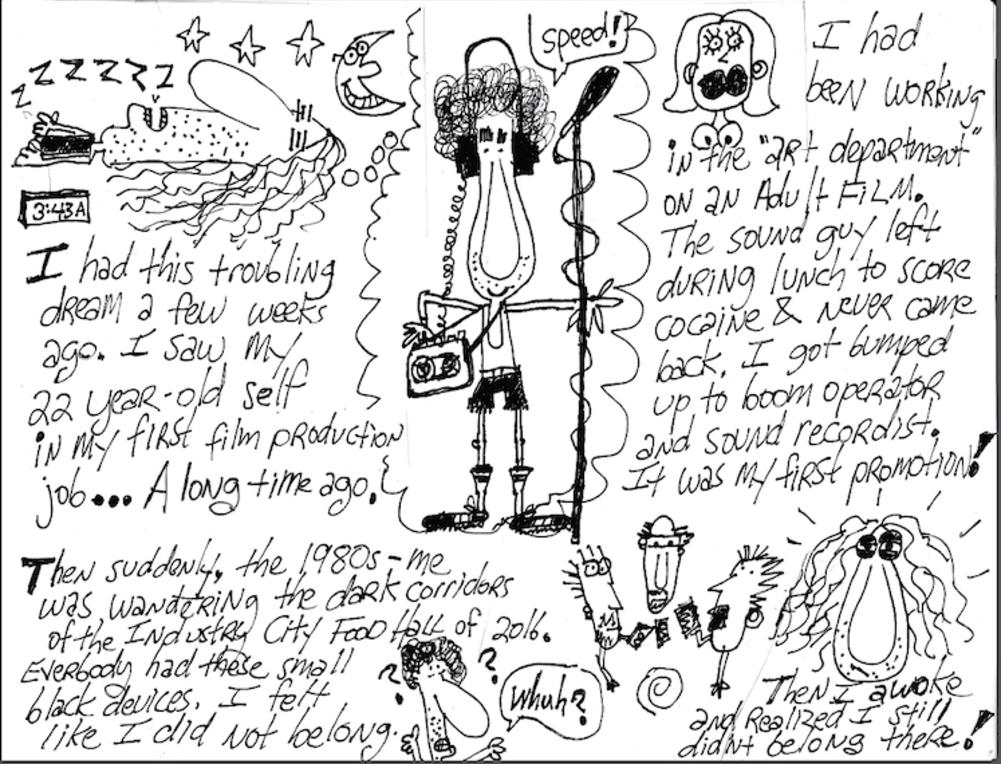 zzzzzz
3:43A
I had this troubling
dream a few weeks
ago. I saw my
22 year-old self
in my first film production
job... A long time ago.
speed!
I had
been working
in the "art department"
on an Adult Film.
The sound guy left
during lunch to score
cocaine & never came
back. I got bumped
up to boom operator
and sound recordist.
It was my first promotion!
Then suddenly, the 1980s-me
was wandering the dark corridors
of the Industry City Food Hall of 2016.
Everybody had these small
black devices. I felt
like I did not belong.
? ?
Whuh?
Then I awoke
and realized I still
didnt belong there!